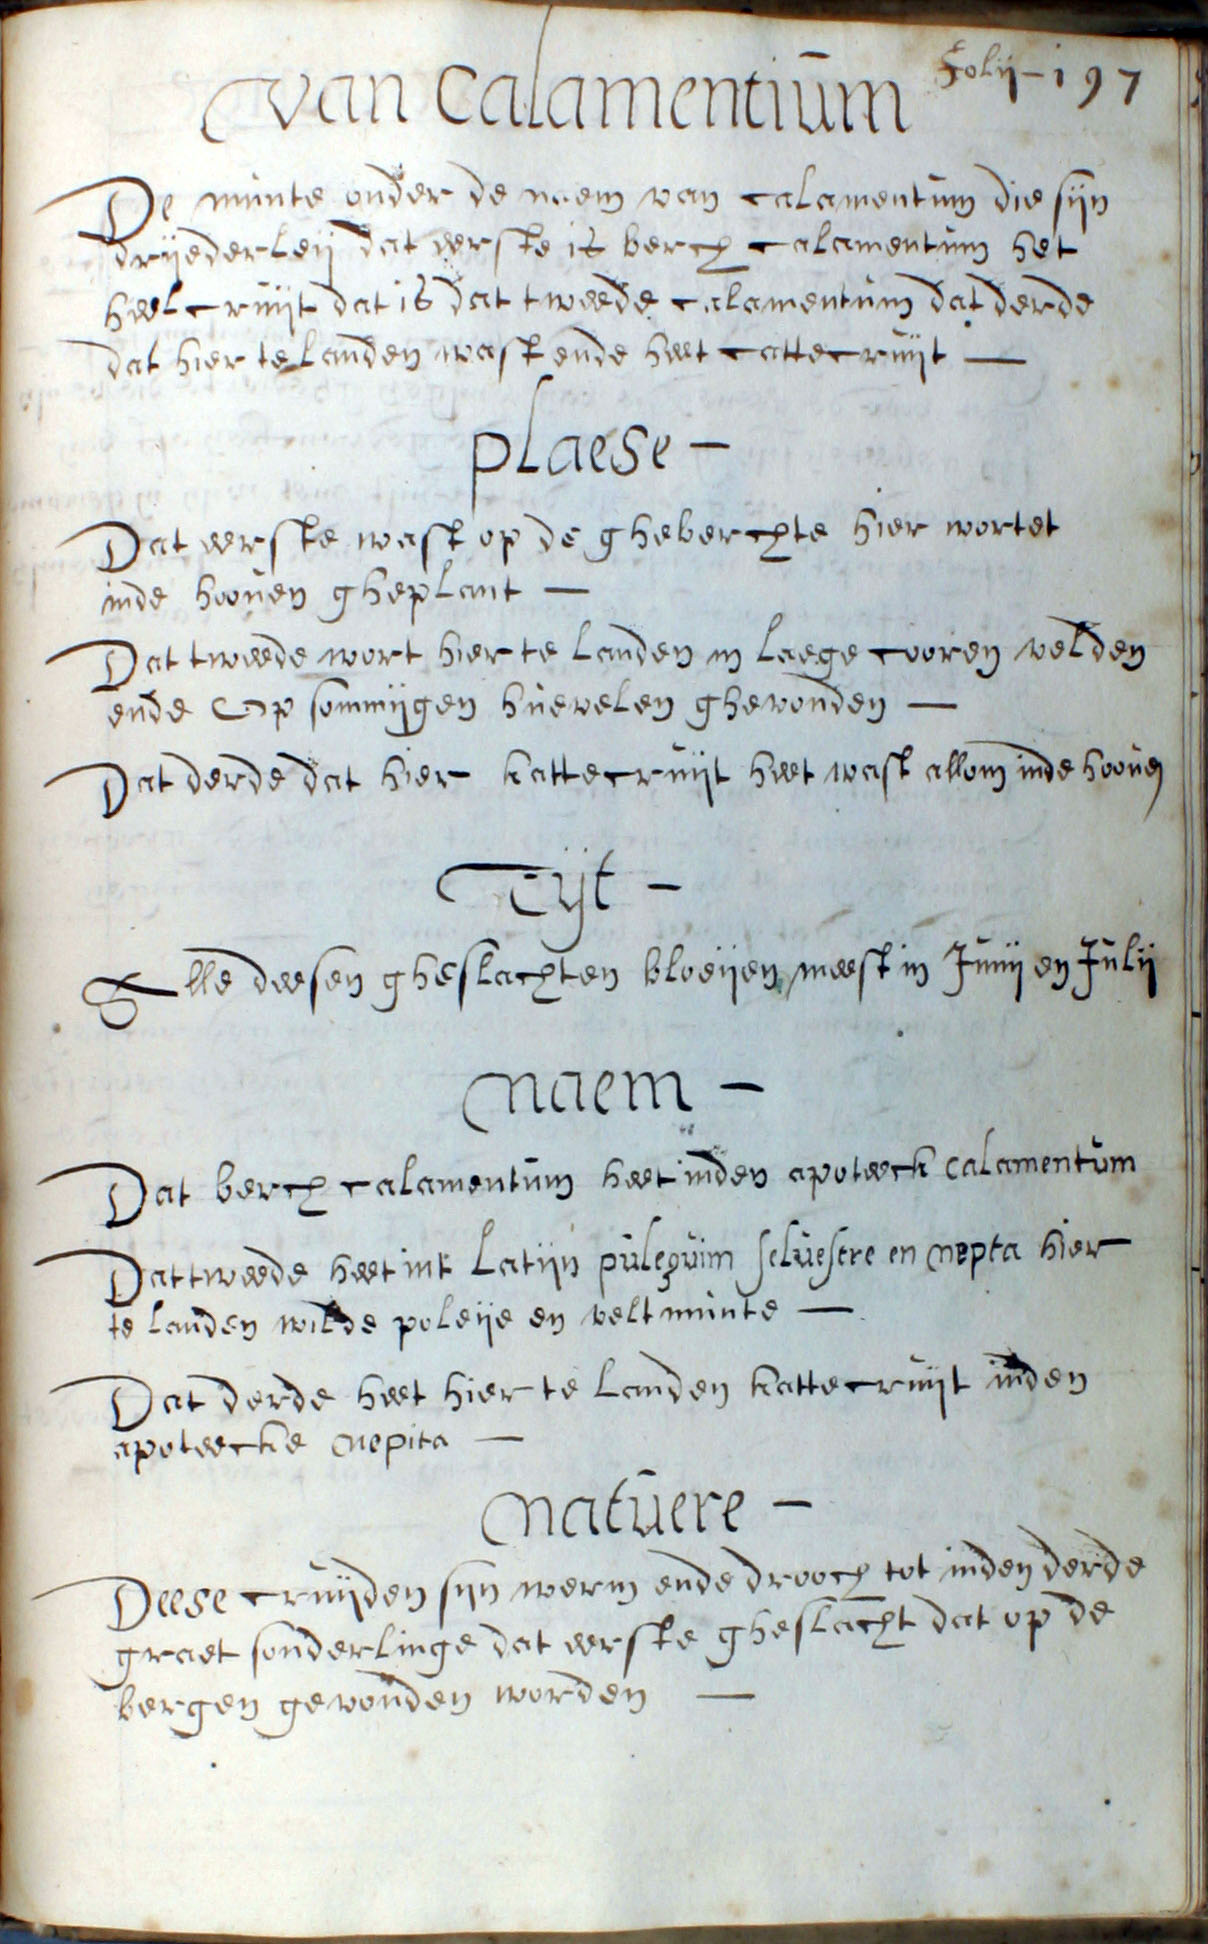 Folij - 197
van Calamentium
De munte onder de naem van calamentum die sijn
drijederleij dat eerste is berch calamentum het
heel cruijt dat is dat tweede calamentum dat derde
dat hier te landen wast ende heet cattecruijt —
plaese —
Dat eerste wast op de gheberchte hier wortet
inde hooven gheplant —
Dat tweede wort hier te landen in laege cooren velden
ende op sommijgen huevelen ghevonden —
Dat derde dat hier kattecruijt heet wast allom inde hooven
Tijt —
Alle deesen gheslachten bloeijen meest in Junij en Julij
Naem —
Dat berch calamentum heet inden apoteeck Calamentum
Dat tweede heet int Latijn puleguim selvestre en nepta hier
te landen wilde poleije en velt munte —
Dat derde heet hier te landen kattecruijt inden
apoteecke nepita —
Natuere —
Deese cruijden sijn werm ende drooch tot inden derde
graet sonderlinge dat eerste gheslacht dat op de
bergen gevonden worden —